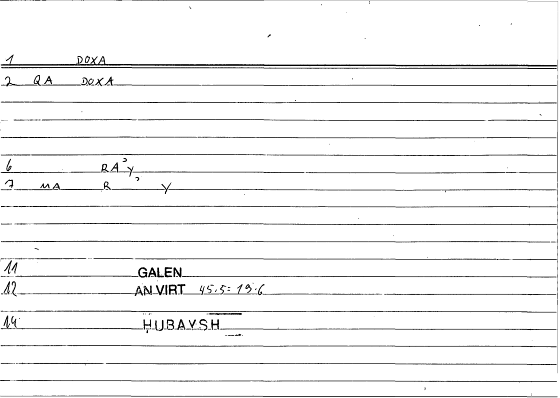 1 DOXA
2 QA DOXA
6 RA'Y
7 MA R ' Y
11 GALEN
12 AN VIRT 45.5 = 19.6
14 HUBAYSH